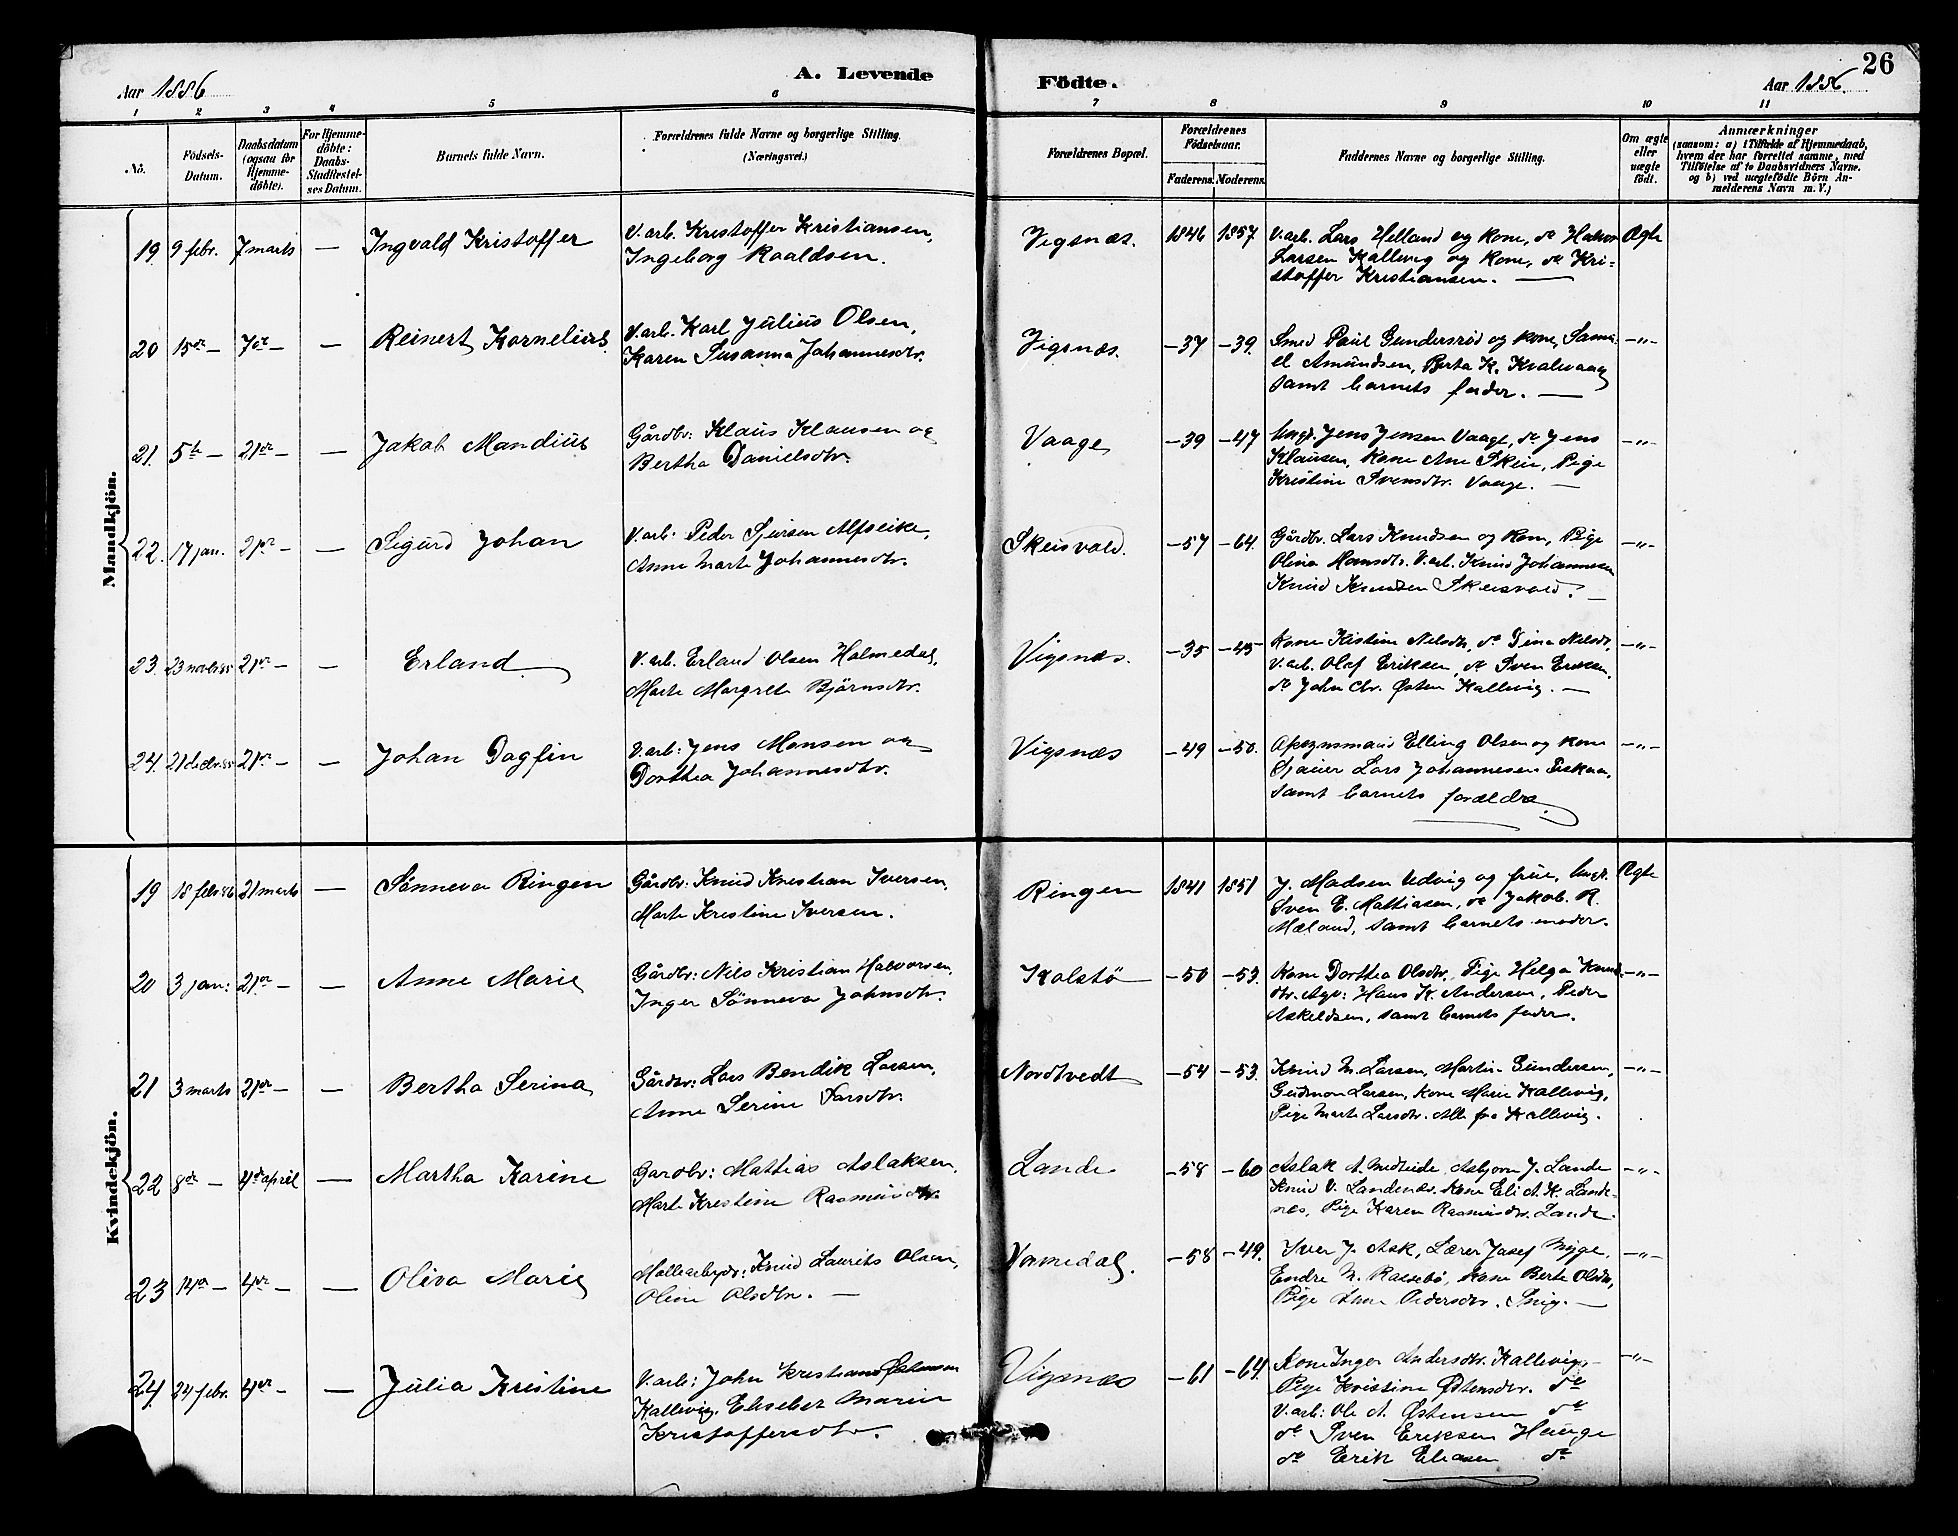 26
Aar 1886
A. Levende
Födte.
Aar 1886.
1 2 3 4 5 6 7 8 9 10 11
No.
Födsels-Datum.
Daabsdatum (ogsaa for Hjemmedöbte).
For Hjemmedöbte: Daabs-Stadfestelses Datum.
Barnets fulde Navn.
Forældrenes fulde Navne og borgerlige Stilling. (Næringsvei.)
Forældrenes Bopæl.
Forældrenes Födselsaar.
Faderens. Moderens.
Faddernes Navne og borgerlige Stilling.
Om ægte eller uægte födt.
Anmærkninger
(saasom: a) i Tilfælde af Hjemmedaab, hvem der har forrettet samme, med Tilföielse af to Daabsvidners Navne. og b) ved uægtefödte Börn Anmelderens Navn m. V.)
Mandkjön.
19. 9 febr. 7 marts — Ingvald Kristoffer
V.arb. Kristoffer Kristiansen,
Ingeborg Roaldsen.
Vigsnæs. 1846 1857
V.arb. Lars Helland og Kone, do Halvor
Larsen Kallevig og Kone, do Kri-
stoffer Kristiansen. —
Ægte
20 15de — 7de — — Reinert Kornelius
V.arb. Karl Julius Olsen,
Karen Susanna Johannesdtr.
Vigsnæs. —37 —39.
Smed Paul Gundersrød og kone, Samu-
el Amundsen, Berta K. Kvalevaag
samt barnets fader. —
—"—
21. 5te — 21de — — Jakob Mandius
Gårdbr: Klaus Klausen og
Bertha Danielsdtr.
Vaage —39 —47
Ungk. Jens Jensen Vaage, do Jens
Klausen, Kone Ane Skeie, Pige
Kristine Svensdtr. Vaage. —
—"—
22. 17 jan. 21de — — Sigurd Johan
V.arb: Peder Sjursen Alfseike,
Anne Marte Johannesdtr.
Skeisvold. —57 —64.
Gårdbr. Lars Knudsen og Kone, Pige
Olina Hansdtr. V.arb. Knud Johannesen
Knud Knudsen Skeisvold. —
—"—
23. 23 novbr 85 21de — — Erland
V.arb. Erland Olsen Holmedal,
Marte Margrete Björnsdtr.
Vigsnæs. —35 —45
Kone Kistine Nelsdtr, do Tina Nelsdtr,
V.arb. Olaf Eriksen, do Sven Eriksen,
do John Chr. Østen Kallevig. —
—"—
24. 21 decbr 85 21de — — Johan Dagfin
V.arb: Jens Monsen og
Dorthea Johannesdtr.
Vigsnæs —49 —50.
Opsynsmand Elling Olsen og kone
Lars Johannesen
samt barnets forældre.
—"—
Kvindekjön.
19 18 febr 86 21 marts — Sønneva Ringen
Gårdbr: Knud Kristian Iversen,
Marte Kristine Iversen.
Ringen 1841 1851
J. Madsen Vedvig og frue, Ungk.
Sven E. Mattiasen, do Jakob R.
Mæland, samt barnets moder.
Ægte
20 3 jan: 21de — — Anne Marie
Gårdbr: Nils Kristian Halvorsen,
Inger Sønneva Johnsdtr.
Kolstö —50 —53.
Kone Dorthea Olsdtr, Pige Helga Knuds-
dtr. Hans K. Andersen, Peder
Askeldsen, samt barnets fader.
—"—
21 3 marts 21de — — Bertha Serina
Gårdbr: Lars Bendik Larsen,
Anne Serine Larsdtr.
Nordtvedt —54 —53.
Knud M. Larsen, Martin Gundersen,
Gudmon Larsen, Kone Marie Kallevig,
Pige Marte Larsdtr. Alle fra Kallevig.
—"—
22 8de — 4de april — Martha Karine
Gårdbr: Mattias Aslaksen,
Marte Kristine Rasmusdtr.
Lande —58 —60
Aslak A. Medhide, Asbjørn J. Lande
Knud V. Landenæs, Kone Eli A. K. Lande-
næs, Pige Karen Rasmusdtr. Lande.
—"—
23 14de — 4de — — Oliva Marie
Knud Laurits Olsen,
Oline Olsdtr. —
Vormedal. —58 —49.
Iver J. Ask, Lærer Josef Myge,
Endre M. Ralsebø, Kone Berte Olsdtr,
Pige Ane Pedersdtr. Snig. —
—"—
24. 24 febr. 4de — — Julia Kristine
V.arb: John Kristian Østensen
Kallevig, Elisebet Marie
Kristoffersdtr.
Vigsnæs —61 —64.
Kone Inger Andersdtr. Kallevig,
Pige Kristine Østensdtr. do
V.arb: Ole A. Østensen do
do Sven Eriksen Hauge
do Erik Eliasen do
—"—